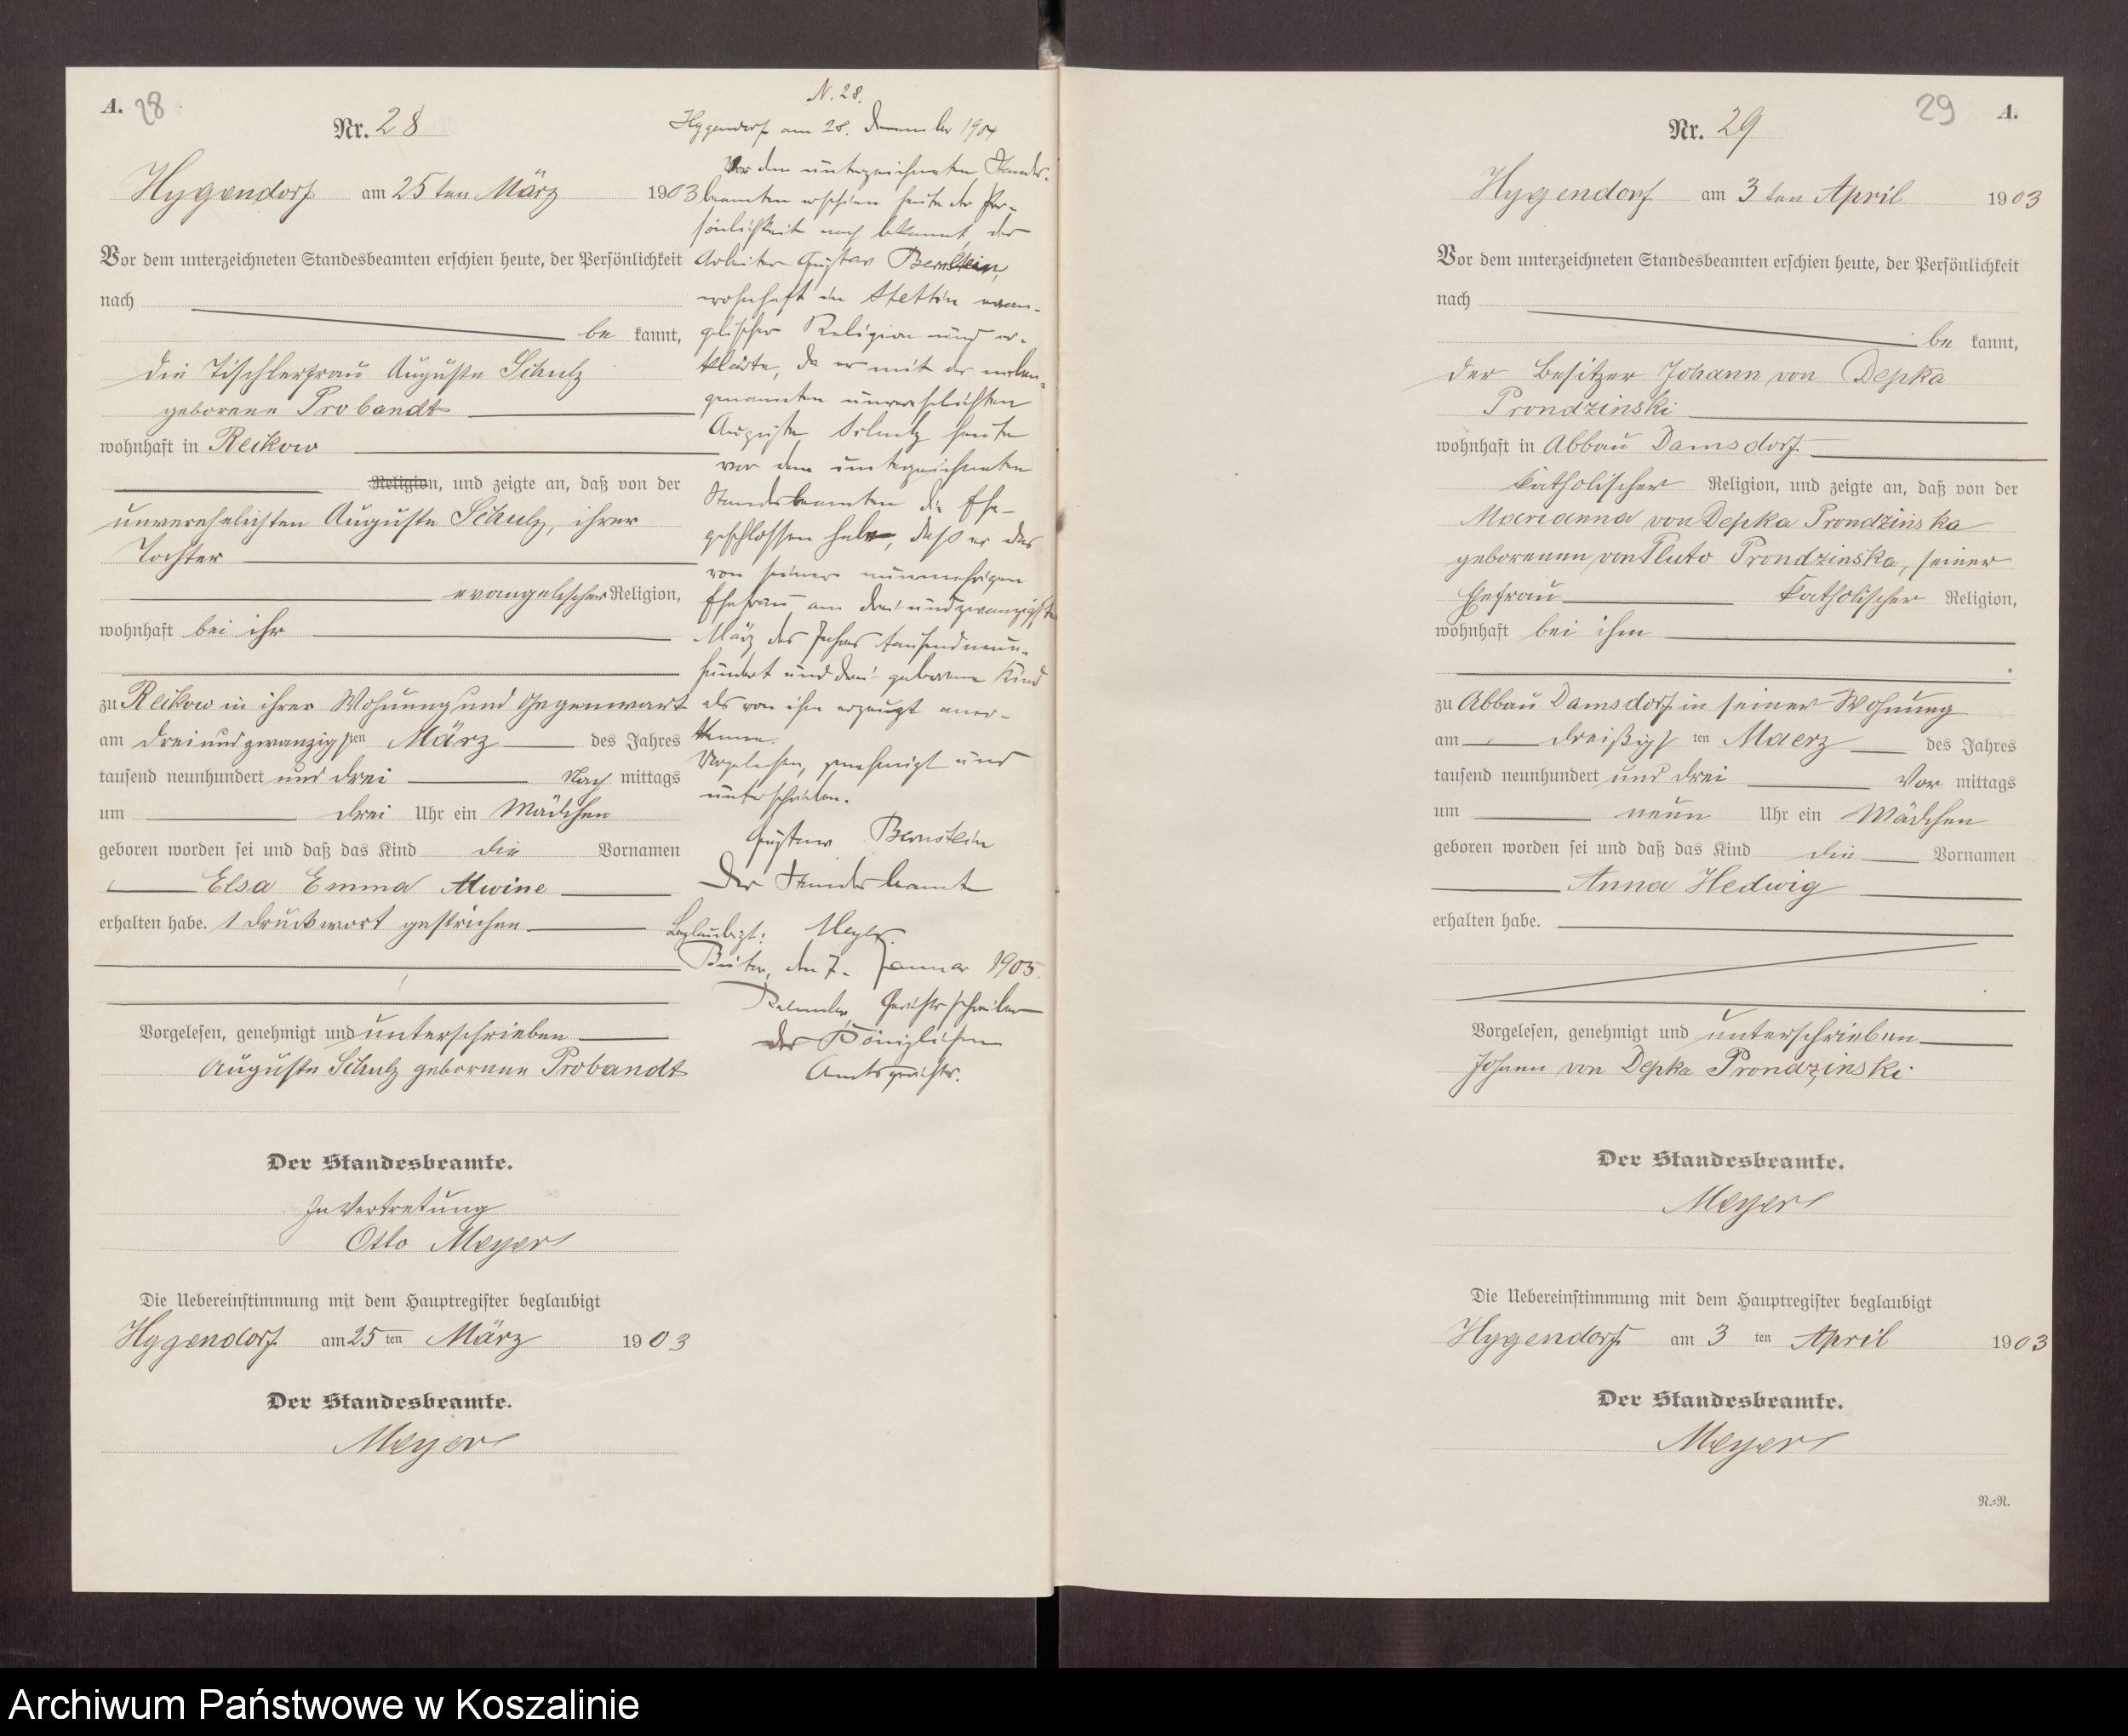 A. 28
Nr. 28
Hygendorf am 25ten März 1903
Vor dem unterzeichneten Standesbeamten erschien heute, der Persönlichkeit
nach
be kannt,
die Tischlerfrau Auguste Schulz
geborene Probandt
wohnhaft in Reikow
Religion, und zeigte an, daß von der
unverehelichten Auguste Schulz, ihrer
Tochter
evangelischer Religion,
wohnhaft bei ihr
zu Reikow in ihrer Wohnung und Gegenwart
am dreiundzwanzigsten März des Jahres
tausend neunhundert und drei Nach mittags
um drei Uhr ein Mädchen
geboren worden sei und daß das Kind die Vornamen
Elsa Emma Alwine
erhalten habe. 1 Druckwort gestrichen
Vorgelesen, genehmigt und unterschrieben
Auguste Schulz geborene Probandt
Der Standesbeamte.
In Vertretung
Otto Meyer
Die Uebereinstimmung mit dem Hauptregister beglaubigt
Hygendorf am 25 ten März 1903
Der Standesbeamte.
Meyer
N. 28.
Hygendorf am 28. Dezember 1904
Vor dem unterzeichneten Standes-
beamten erschien heute der Per-
sönlichkeit nach bekannt, der
Arbeiter Gustav Bernstein,
wohnhaft in Stettin evan-
gelischer Religion und er-
klärte, da er mit der neben-
genannten unverehelichten
Auguste Schulz heute
vor dem unterzeichneten
Standesbeamten die Ehe
geschlossen habe, daß er das
von seiner nunmehrigen
Ehefrau am dreiundzwanzigsten
März des Jahres tausendneun-
hundert und drei geborene Kind
als von ihm erzeugt aner-
kenne.
Vorgelesen, genehmigt und
unterschrieben.
Gustav Bernstein
Der Standesbeamte
Meyer.
Beglaubigt:
Bütow, den 7. Januar 1905.
Gerichtsschreiber
des Königlichen
Amtsgerichts.
29 A.
Nr. 29
Hygendorf am 3 ten April 1903
Vor dem unterzeichneten Standesbeamten erschien heute, der Persönlichkeit
nach
be kannt,
der Besitzer Johann von Depka
Prondzinski
wohnhaft in Abbau Damsdorf
katholischer Religion, und zeigte an, daß von der
Marianna von Depka Prondzinska
geborenen von Pluto Prondzinska, seiner
Ehefrau katholischer Religion,
wohnhaft bei ihm
zu Abbau Damsdorf in seiner Wohnung
am dreißigs ten Maerz des Jahres
tausend neunhundert und drei Vor mittags
um neun Uhr ein Mädchen
geboren worden sei und daß das Kind die Vornamen
Anna Hedwig
erhalten habe.
Vorgelesen, genehmigt und unterschrieben
Johann von Depka Prondzinski
Der Standesbeamte.
Meyer
Die Uebereinstimmung mit dem Hauptregister beglaubigt
Hygendorf am 3 ten April 1903
Der Standesbeamte.
Meyer
N.=R.
Archiwum Państwowe w Koszalinie